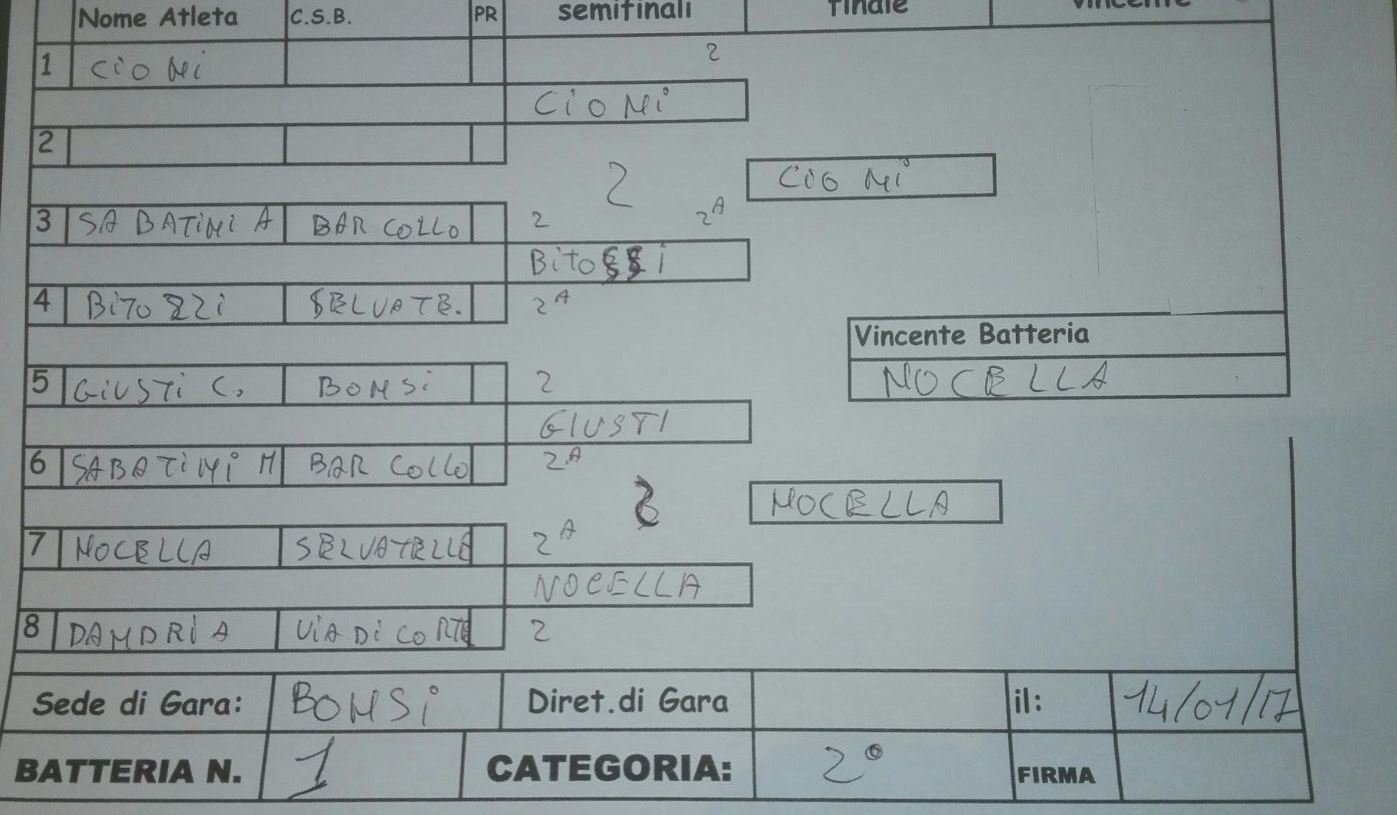 Nome Atleta C.S.B. PR semifinali finale vincente
1 CIONI 2
CIONI
2
2 CIONI
3 SABATINI A BAR COLLO 2 2A
BITOSSI
4 BITOZZI SELVATE. 2A
Vincente Batteria
5 GIUSTI C. BONSI 2 NOCELLA
GIUSTI
6 SABATINI M BAR COLLO 2A
NOCELLA
7 NOCELLA SELVATELLE 2A
NOCELLA
8 DANDRIA VIA DI CORTE 2
Sede di Gara: BONSI Diret.di Gara il: 14/01/17
BATTERIA N. 1 CATEGORIA: 2° FIRMA